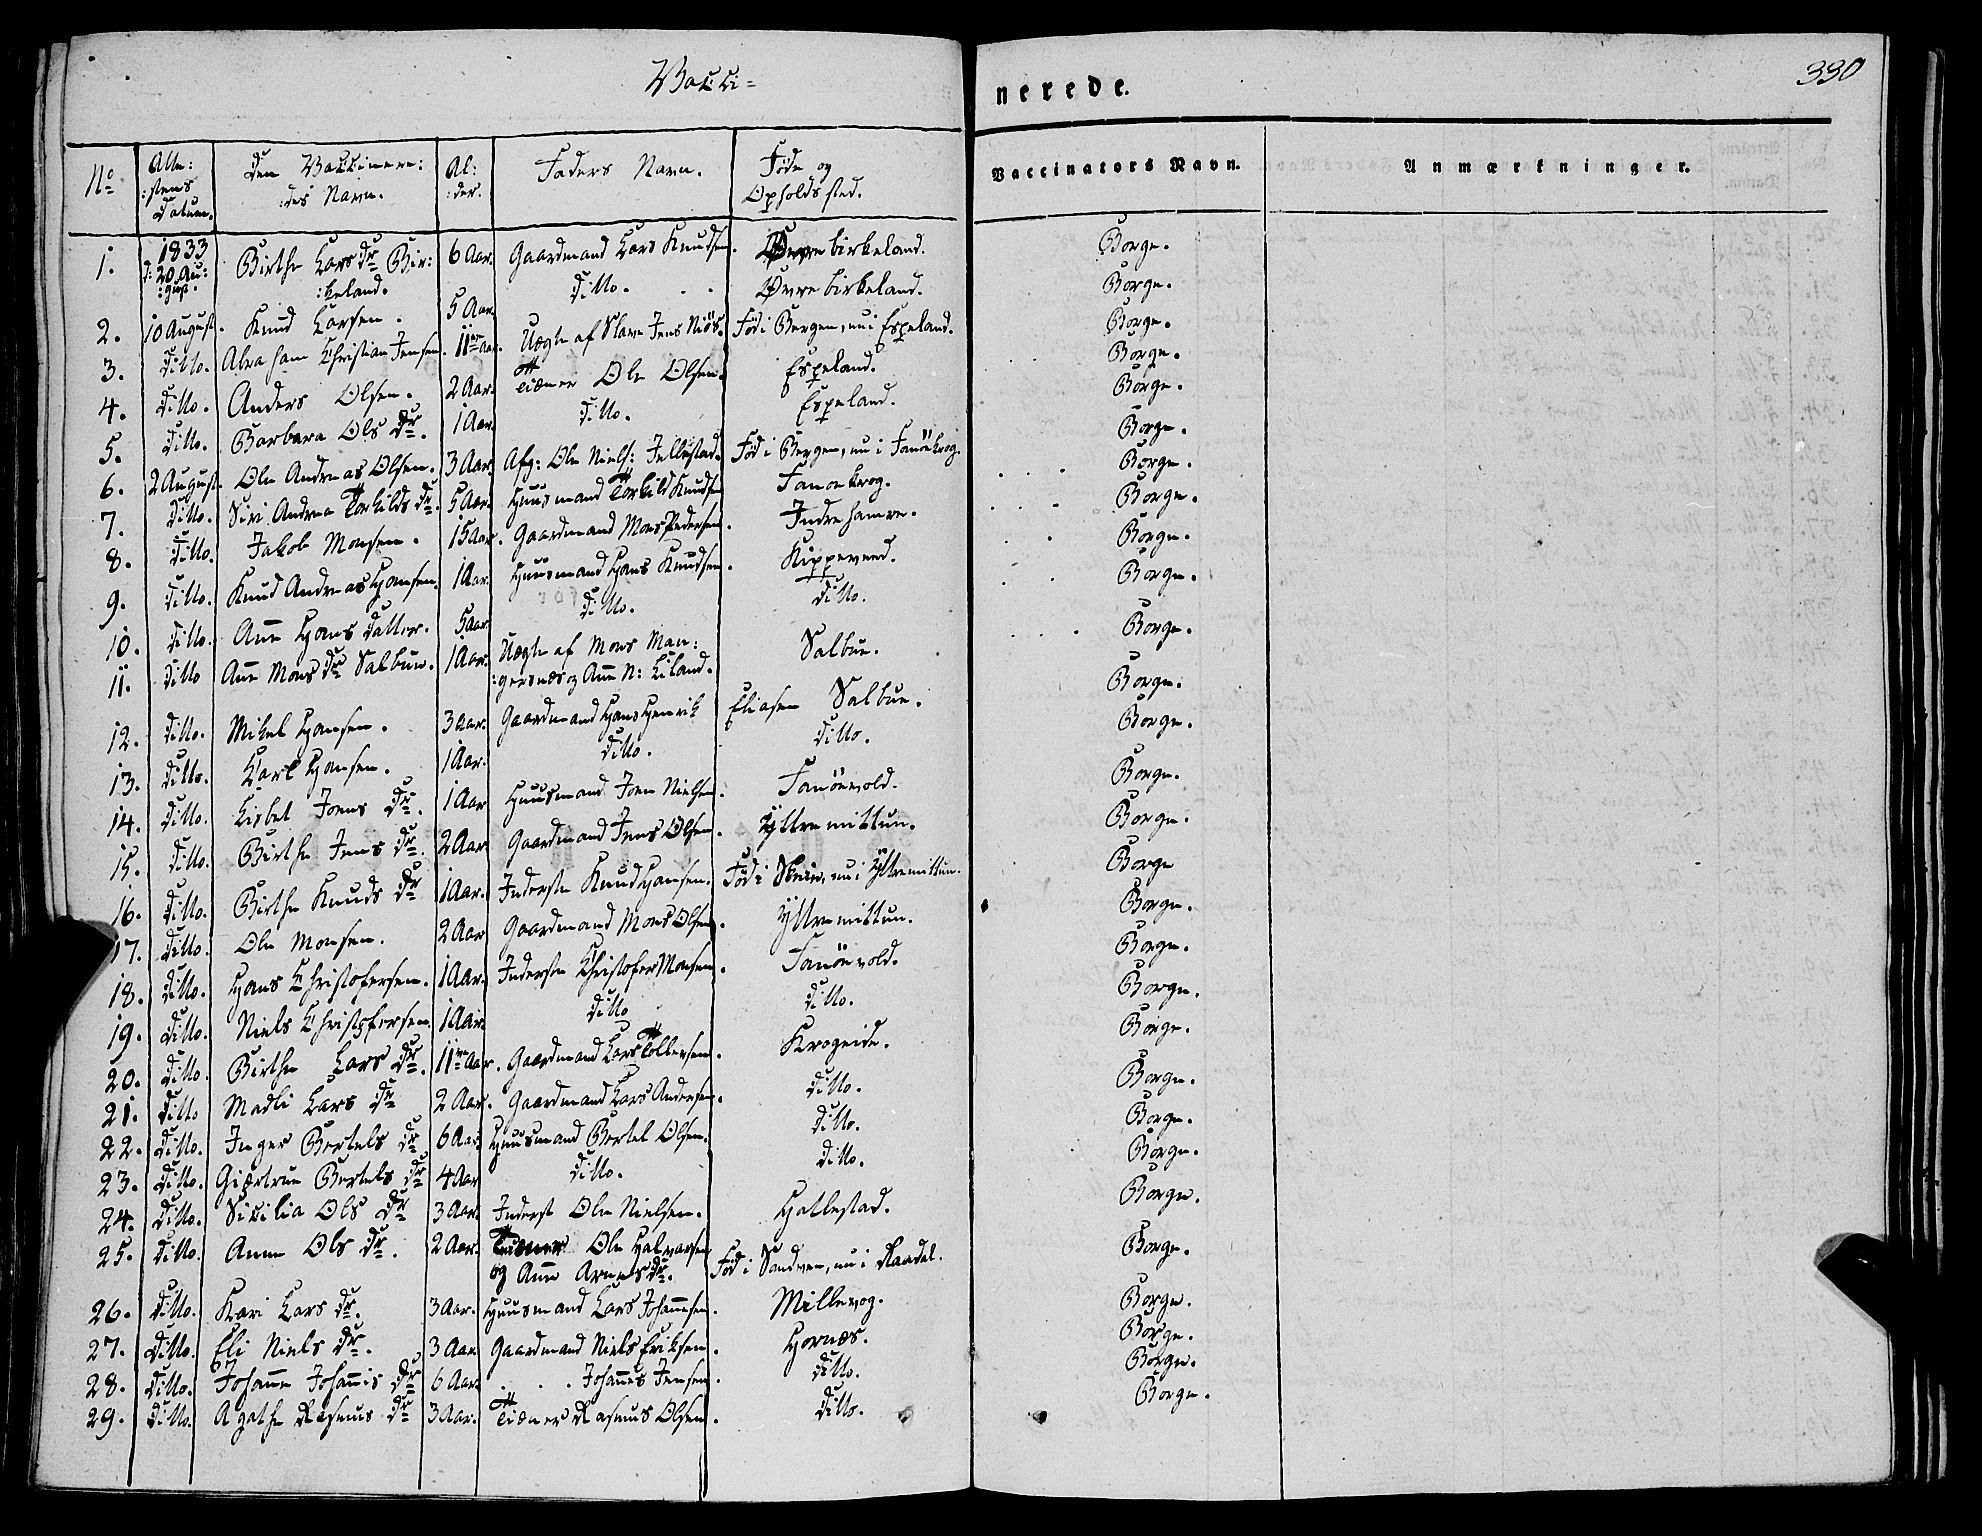 Vacci=
nerede.
330
No
Atte:
:stens
Datum.
Den Vaccinere:
:des Navn.
Al:
:der.
Faders Navn.
Føde og
Opholdssted.
Vaccinators Navn.
Anmærkninger.
1. 1833 d: 20 Au: :gust. Birthe Lars Dr Bir: :keland. 6 Aar. Gaardmand Lars Knudsen. Øvrebirkeland. Borge.
2. 10 August. Knud Larsen. 5 Aar Ditto. Øvrebirkeland. Borge.
3. Ditto. Abraham Christian Jensen. 11 Aar. Uægte af Slave Jens Niös. Föd i Bergen, nu i Espeland. Borge.
4. Ditto. Anders Olsen. 2 Aar. Tiæner Ole Olsen. Espeland. Borge.
5. Ditto. Barbara Ols Dr. 1 Aar Ditto. Espeland. Borge.
6. 2 August. Ole Andreas Olsen. 3 Aar Afg: Ole Niels: Jellestad. Föd i Bergen, nu i Fanöekrog. Borge.
7. Ditto. Siri Andrea Torkilds Dr. 5 Aar. Huusmand Torkild Knudsen Fanoekrog. Borge.
8. Ditto. Jakob Monsen. 15 Aar. Gaardmand Mons Pedersen. Indrehamre. Borge.
9. Ditto. Knud Andreas Hansen. 1 Aar. Huusmand Hans Knudsen. Kippeversd. Borge.
10. Ditto. Ane Hans Datter. 5 Aar Ditto. Ditto. Borge.
11. Ditto Ane Mons Dr Salbue. 1 Aar. Uægte af Mons Man: :gersnæs og Ane N: Liland. Salbue. Borge.
12. Ditto. Mikel Hansen. 3 Aar. Gaardmand Hans Henrik Eliasen Salbue. Borge.
13. Ditto. Karl Hansen. 1 Aar. Ditto. Ditto. Borge.
14. Ditto. Lisbet Joens Dr. 1 Aar Huusmand Joen Nielsen. Fanöevold. Borge.
15. Ditto. Birthe Jens Dr. 2 Aar Gaardmand Jens Olsen. Yttremittun. Borge.
16. Ditto. Birthe Knuds Dr 1 Aar. Inderste Knud Hansen. Föd i Skeie, nu i Yttremittun. Borge
17. Ditto. Ole Monsen. 2 Aar Gaardmand Mons Olsen. Yttremittun. Borge.
18. Ditto. Hans Christofersen. 1 Aar. Inderste Christofer Monsen. Fanöevold. Borge.
19. Ditto. Niels Christofersen. 1 Aar. Ditto Ditto. Borge.
20. Ditto. Birthe Lars Dr. 11 Aar. Gaardmand Lars Tollersen. Krogeide. Borge.
21. Ditto Madli Lars Dr 2 Aar. Gaardmand Lars Andersen. Ditto. Borge.
22. Ditto. Inger Bertels Dr 6 Aar Huusmand Bertel Olsen. Ditto. Borge.
23. Ditto. Giærtrue Bertels Dr 4 Aar Ditto. Ditto. Borge.
24. Ditto. Sicilia Ols Dr 3 Aar. Inderst Ole Nielsen. Hatlestad. Borge.
25. Ditto. Anne Ols Dr. 2 Aar. Ole Halvorsen og Ane Arnesdr. Föd i Sandven, nu i Raadal. Borge.
26. Ditto. Kari Lars Dr. 3 Aar. Huusmand Lars Johannesen. Millevog. Borge.
27. Ditto. Eli Niels Dr. 3 Aar Gaardmand Niels Eriksen. Hornæs. Borge.
28. Ditto. Johanne Johannis Dr 6 Aar. . . . Johannes Jensen. Ditto. Borge.
29. Ditto. Agathe Rasmus Dr 3 Aar. Tiæner Rasmus Olsen. Ditto. Borge.